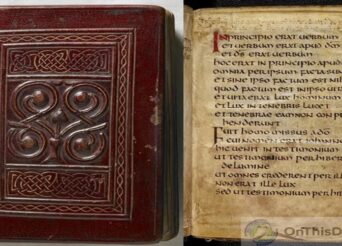 IN PRINCIPIO ERAT UERBUM
ET UERBUM ERAT APUD
ET ERAT UERBUM
HOC ERAT IN PRINCIPIO APUD
OMNIA PER IPSUM FACTA SUN
ET SINE IPSO FACTUM EST NIH
QUOD FACTUM EST IN IPSO UITA
ET UITA ERAT LUX
ET LUX IN TENEBRIS LUCET
ET TENEBRAE EAM NON CON
PREHENDERUNT
FUIT HOMO MISSUS
CUI NOMEN ERAT IOHANN
HIC UENIT IN TESTIMONIUM
UT TESTIMONIUM PERHIBER
DE LUMINE
UT OMNES CREDERENT PER ILLU
NON ERAT ILLE LUX
SED UT TESTIMONIUM PERHIB
OnThisD